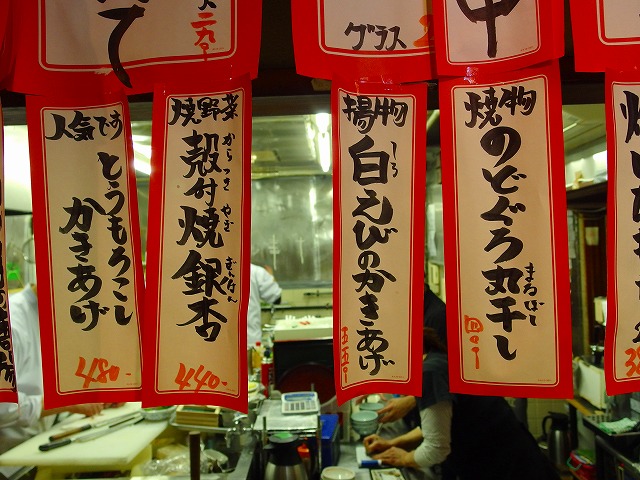 て
二九〇
グラス
中
人気です
とうもろこし
かきあげ
480-
焼野菜
からつき やき ぎんなん
殻付焼銀杏
440-
揚物
しろ
白えびのかきあげ
五五〇
焼物
まるぼし
のどぐろ丸干し